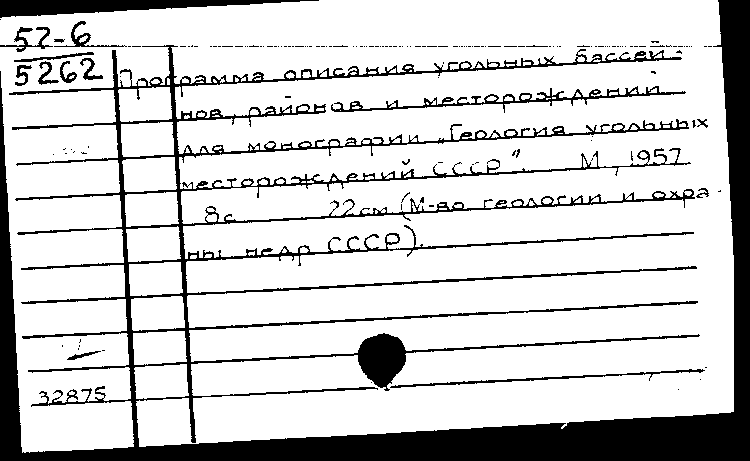 57-6
5262
Программа описания угольных бассей-
нов, районов и месторождений
для монографии „Геология угольных
месторождений СССР". М, 1957
8с 22см (М-во геологии и охра-
ны недр СССР).
32875